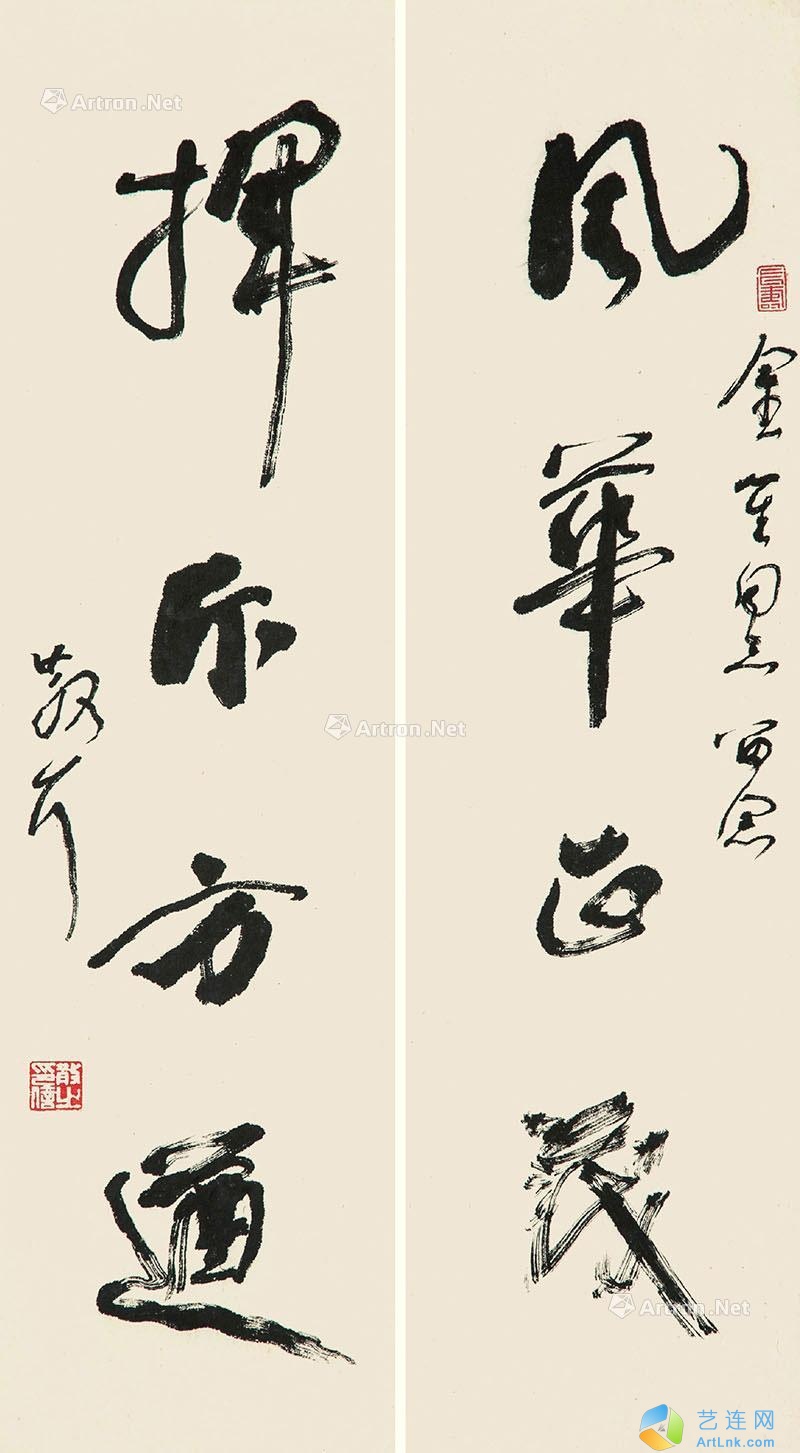 風華正茂
金同志留念
揮斥方遒
散耳
散之印信
Artron.Net
Artron.Net
Artron.Net
艺连网
ArtLnk.com